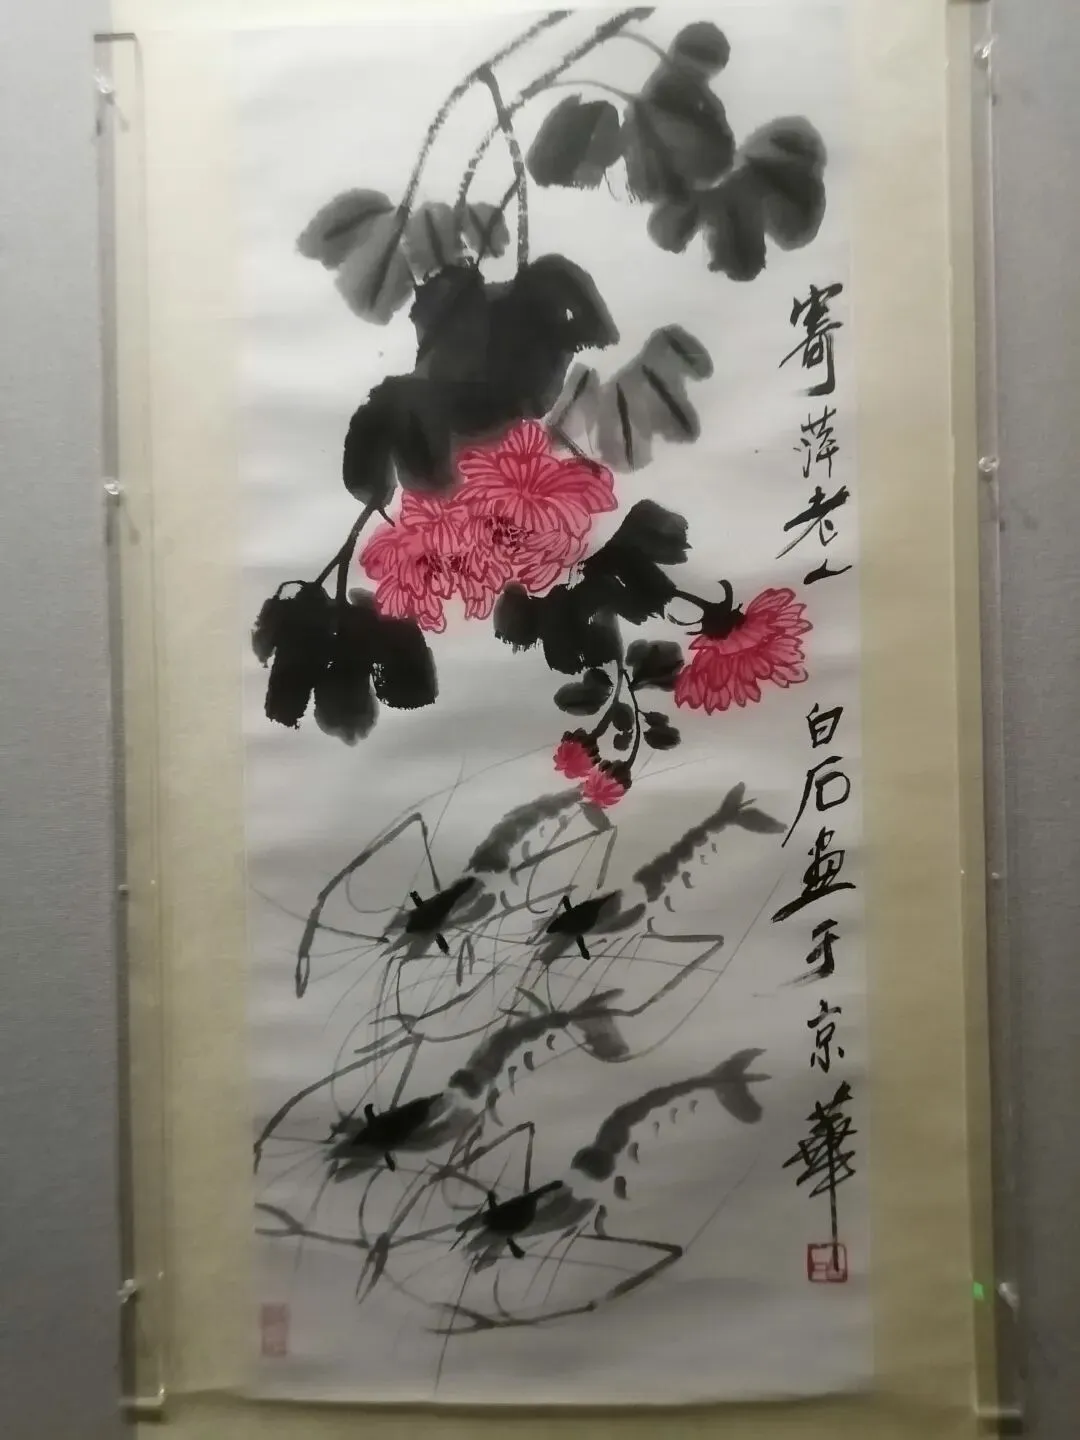 寄萍老人
白石画于京華